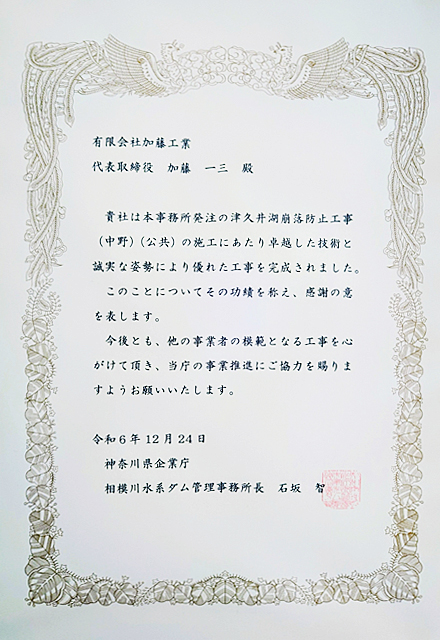 有限会社加藤工業
代表取締役　加藤　一三　殿
貴社は本事務所発注の津久井湖崩落防止工事
（中野）（公共）の施工にあたり卓越した技術と
誠実な姿勢により優れた工事を完成されました。
このことについてその功績を称え、感謝の意
を表します。
今後とも、他の事業者の模範となる工事を心
がけて頂き、当庁の事業推進にご協力を賜りま
すようお願いいたします。
令和６年１２月２４日
神奈川県企業庁
相模川水系ダム管理事務所長　石坂　智